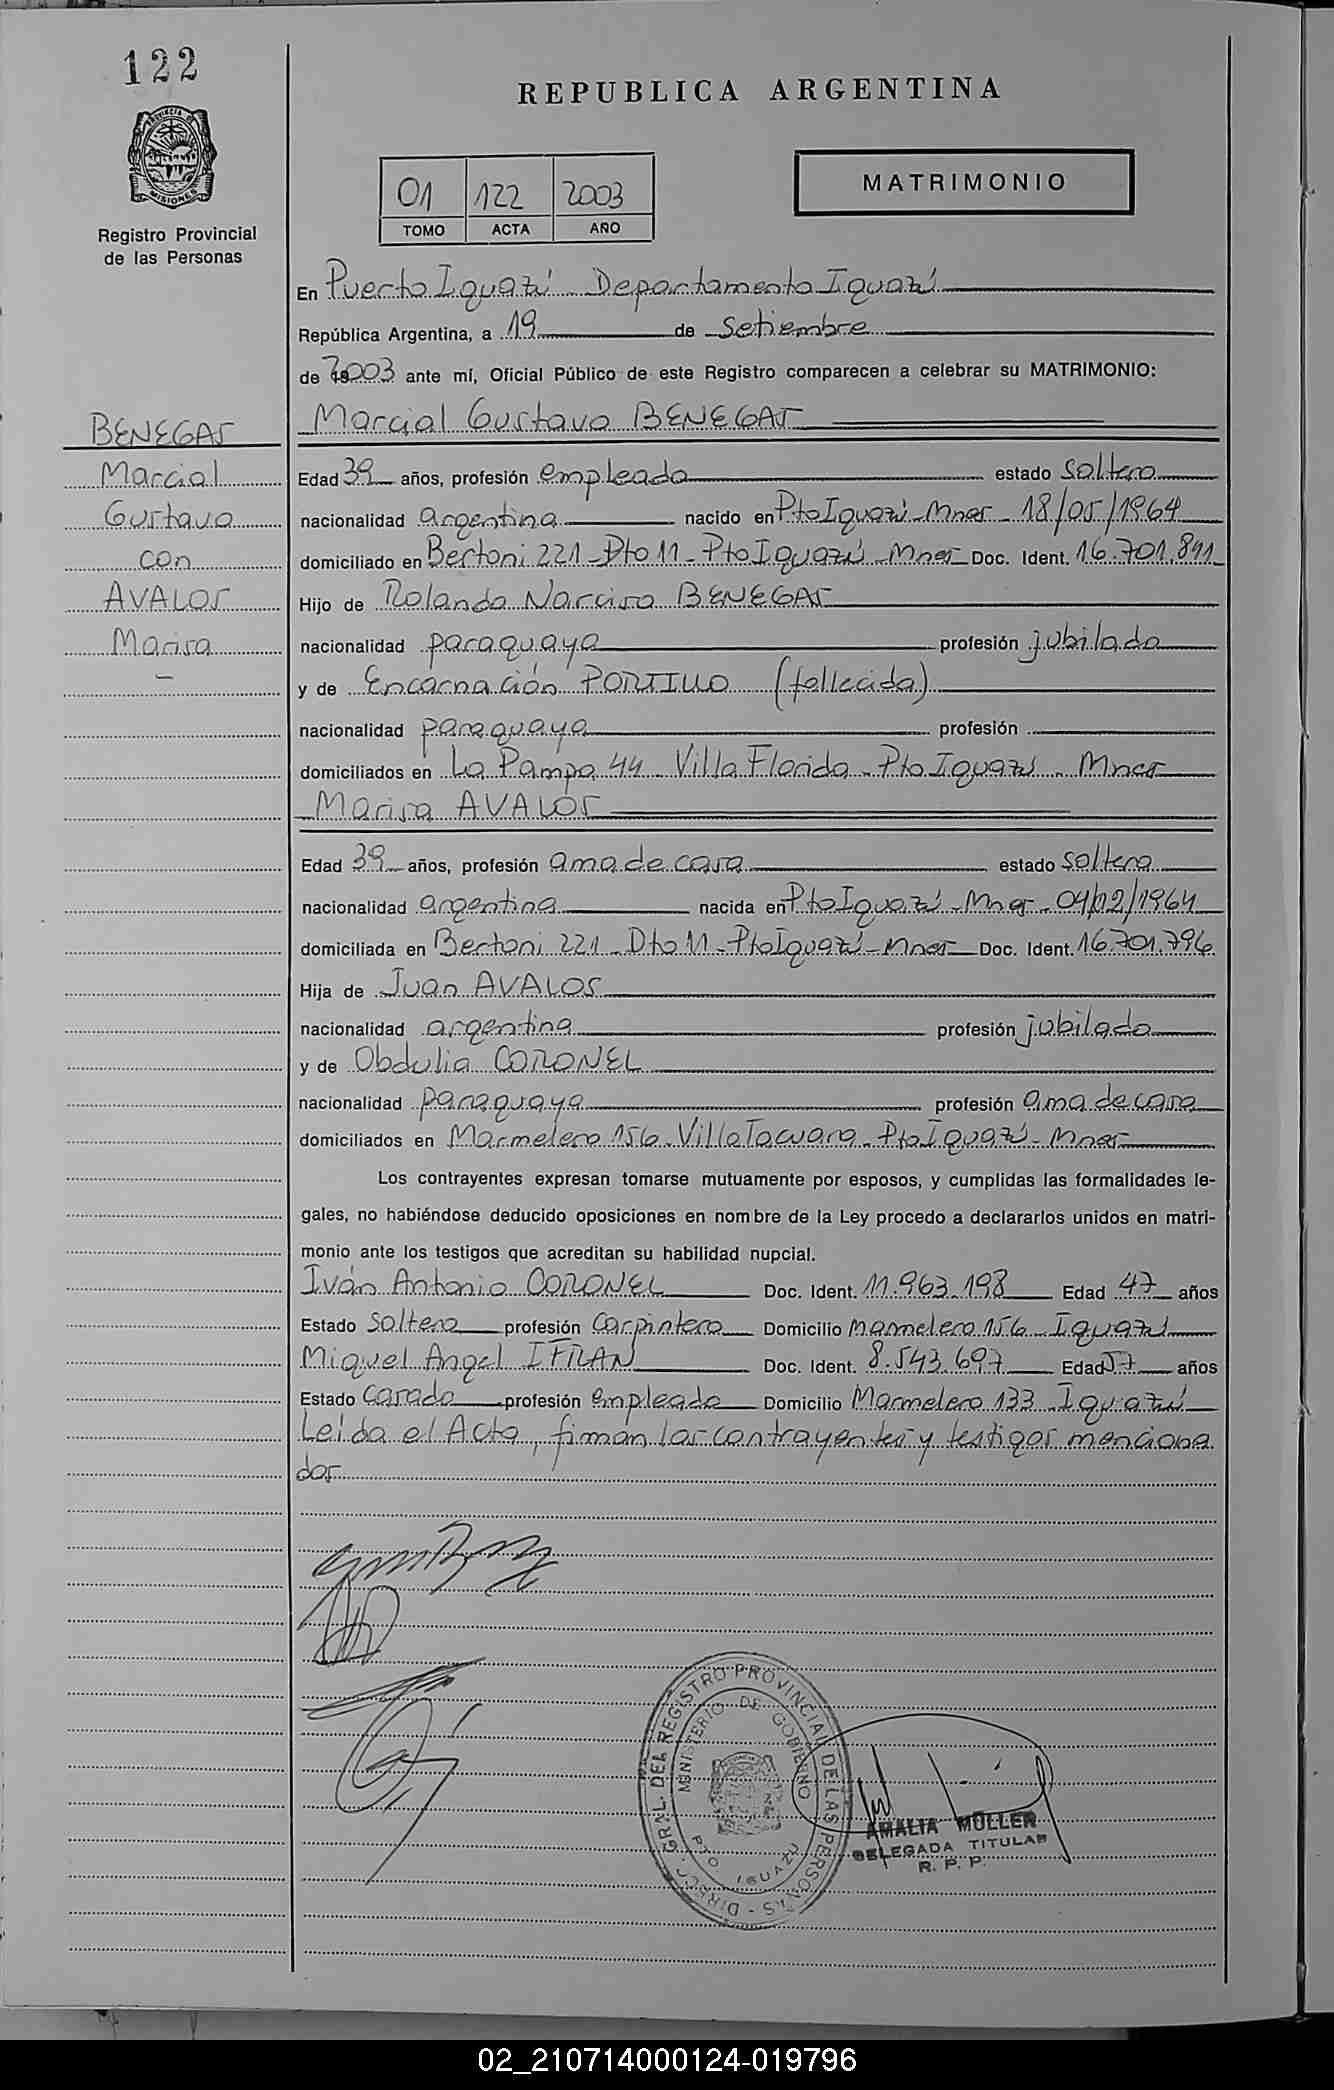 122
REPUBLICA ARGENTINA
MISIONES
Registro Provincial
de las Personas
01 122 2003
TOMO ACTA AÑO
MATRIMONIO
En Puerto Iguazú Departamento Iguazú
República Argentina, a 19 de Setiembre
de 2003 ante mí, Oficial Público de este Registro comparecen a celebrar su MATRIMONIO:
Marcial Gustavo BENEGAS
BENEGAS
Marcial
Gustavo
con
AVALOS
Marisa
Edad 39 años, profesión empleado estado soltero
nacionalidad argentina nacido en Pto Iguazú - Mnes - 18/05/1964
domiciliado en Bertoni 221 - Dto 11 - Pto Iguazú - Mnes Doc. Ident. 16.701.891
Hijo de Rolando Narciso BENEGAS
nacionalidad paraguaya profesión jubilado
y de Encarnación PORTILLO (fallecida)
nacionalidad paraguaya profesión
domiciliados en La Pampa 44 - Villa Florida - Pto Iguazú - Mnes
Marisa AVALOS
Edad 39 años, profesión ama de casa estado soltera
nacionalidad argentina nacida en Pto Iguazú - Mnes - 04/02/1964
domiciliada en Bertoni 221 - Dto 11 - Pto Iguazú - Mnes Doc. Ident. 16.701.796
Hija de Juan AVALOS
nacionalidad argentina profesión jubilado
y de Obdulia CORONEL
nacionalidad paraguaya profesión ama de casa
domiciliados en Marmelero 156 - Villa Tacuara - Pto Iguazú - Mnes
Los contrayentes expresan tomarse mutuamente por esposos, y cumplidas las formalidades le-
gales, no habiéndose deducido oposiciones en nombre de la Ley procedo a declararlos unidos en matri-
monio ante los testigos que acreditan su habilidad nupcial.
Iván Antonio CORONEL Doc. Ident. 11.963.198 Edad 47 años
Estado Soltero profesión Carpintero Domicilio Marmelero 156 - Iguazú
Miguel Angel IFRAN Doc. Ident. 8.543.697 Edad 57 años
Estado Casado profesión empleado Domicilio Marmelero 133 - Iguazú
Leída el Acta, firman los contrayentes y testigos menciona
dos
DIREC. GRAL. DEL REGISTRO PROVINCIAL DE LAS PERSONAS
MINISTERIO DE GOBIERNO
PTO. IGUAZU
AMALIA MÜLLER
DELEGADA TITULAR
R. P. P.
02_210714000124-019796